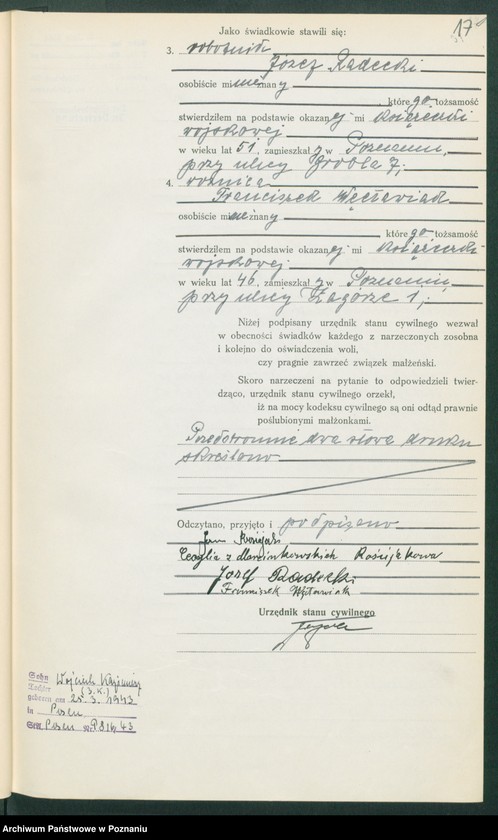 17
Jako świadkowie stawili się:
3. robotnik
Józef Radecki
osobiście mi nieznany
którego tożsamość
stwierdziłem na podstawie okazanej mi książeczki
wojskowej
w wieku lat 51, zamieszkały w Poznaniu,
przy ulicy Grobla 7;
4. woźnica
Franciszek Węcławiak
osobiście mi nieznany
którego tożsamość
stwierdziłem na podstawie okazanej mi książeczki
wojskowej
w wieku lat 46, zamieszkały w Poznaniu,
przy ulicy Zagórze 1,
Niżej podpisany urzędnik stanu cywilnego wezwał
w obecności świadków każdego z narzeczonych zosobna
i kolejno do oświadczenia woli,
czy pragnie zawrzeć związek małżeński.
Skoro narzeczeni na pytanie to odpowiedzieli twier-
dząco, urzędnik stanu cywilnego orzekł,
iż na mocy kodeksu cywilnego są oni odtąd prawnie
poślubionymi małżonkami.
Przedstronnie dwa słowa druku
skreślono
Odczytano, przyjęto i podpisano
Jan
Cecylia z Rosiejkowa
Józef Radecki
Franciszek
Urzędnik stanu cywilnego
Sohn Wojciech Kazimierz
Tochter (3. K.)
geboren am 25. 3. 1943
in Posen
StA Posen Nr. 43
Archiwum Państwowe w Poznaniu